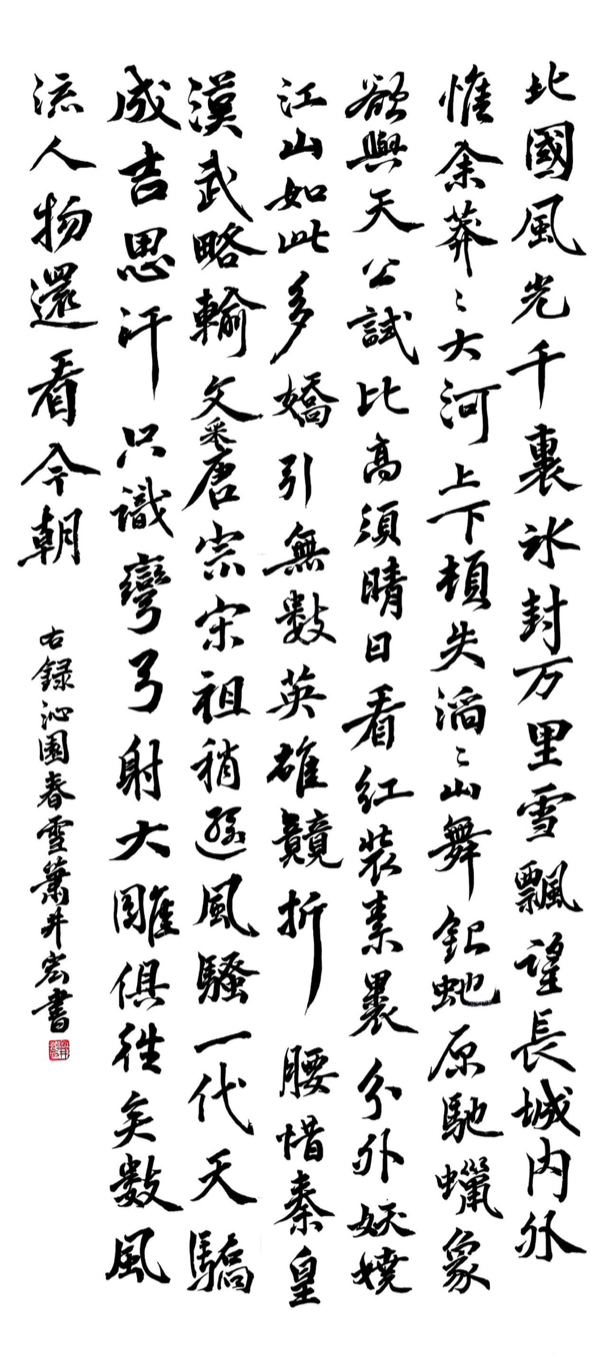 北國風光千裏冰封万里雪飄望長城内外
惟余莽〻大河上下頓失滔〻山舞銀虵原馳蠟象
欲與天公試比高須晴日看紅裝素裹分外妖嬈
江山如此多嬌引無數英雄競折腰惜秦皇
漢武略輸文采唐宗宋祖稍遜風騷一代天驕
成吉思汗只識彎弓射大雕俱往矣數風
流人物還看今朝
右録沁園春雪蕭井宏書